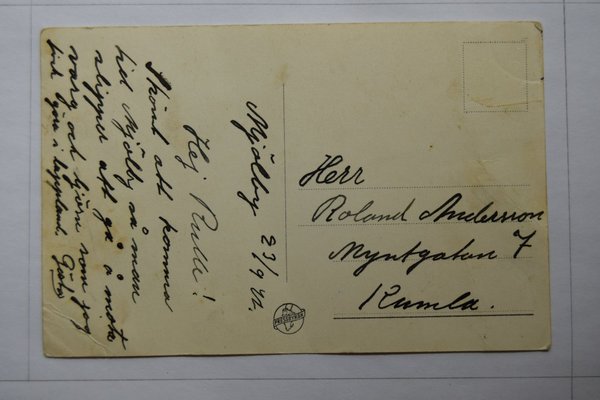 Mjölby 23/9 42.
Hej Rulle!
Skönt att komma
till Mjölby så man
slipper att gå å möta
varg och björn som jag
fick göra i lappland. Gösta
Herr
Roland Andersson
Myntgatan 7
Kumla.